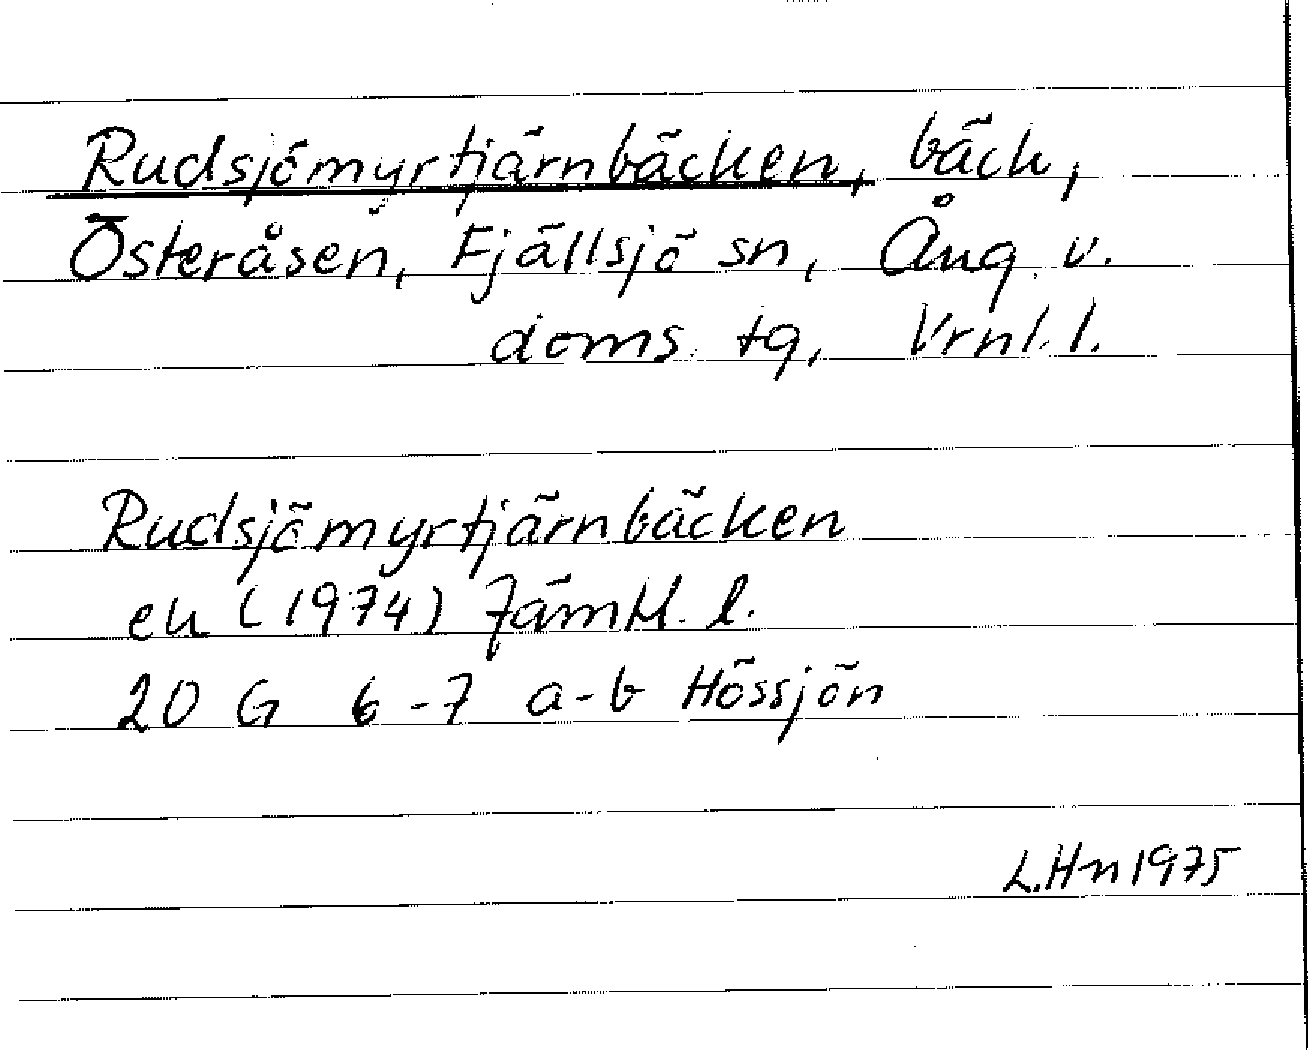 Rudsjömyrtjärnbäcken, bäck,
Österåsen, Fjällsjö sn, Ång. v.
doms. tg, Vrnl. l.
Rudsjömyrtjärnbäcken
ek (1974) Jämtl. l.
20 G 6-7 a-b Hössjön
L.Hn 1975